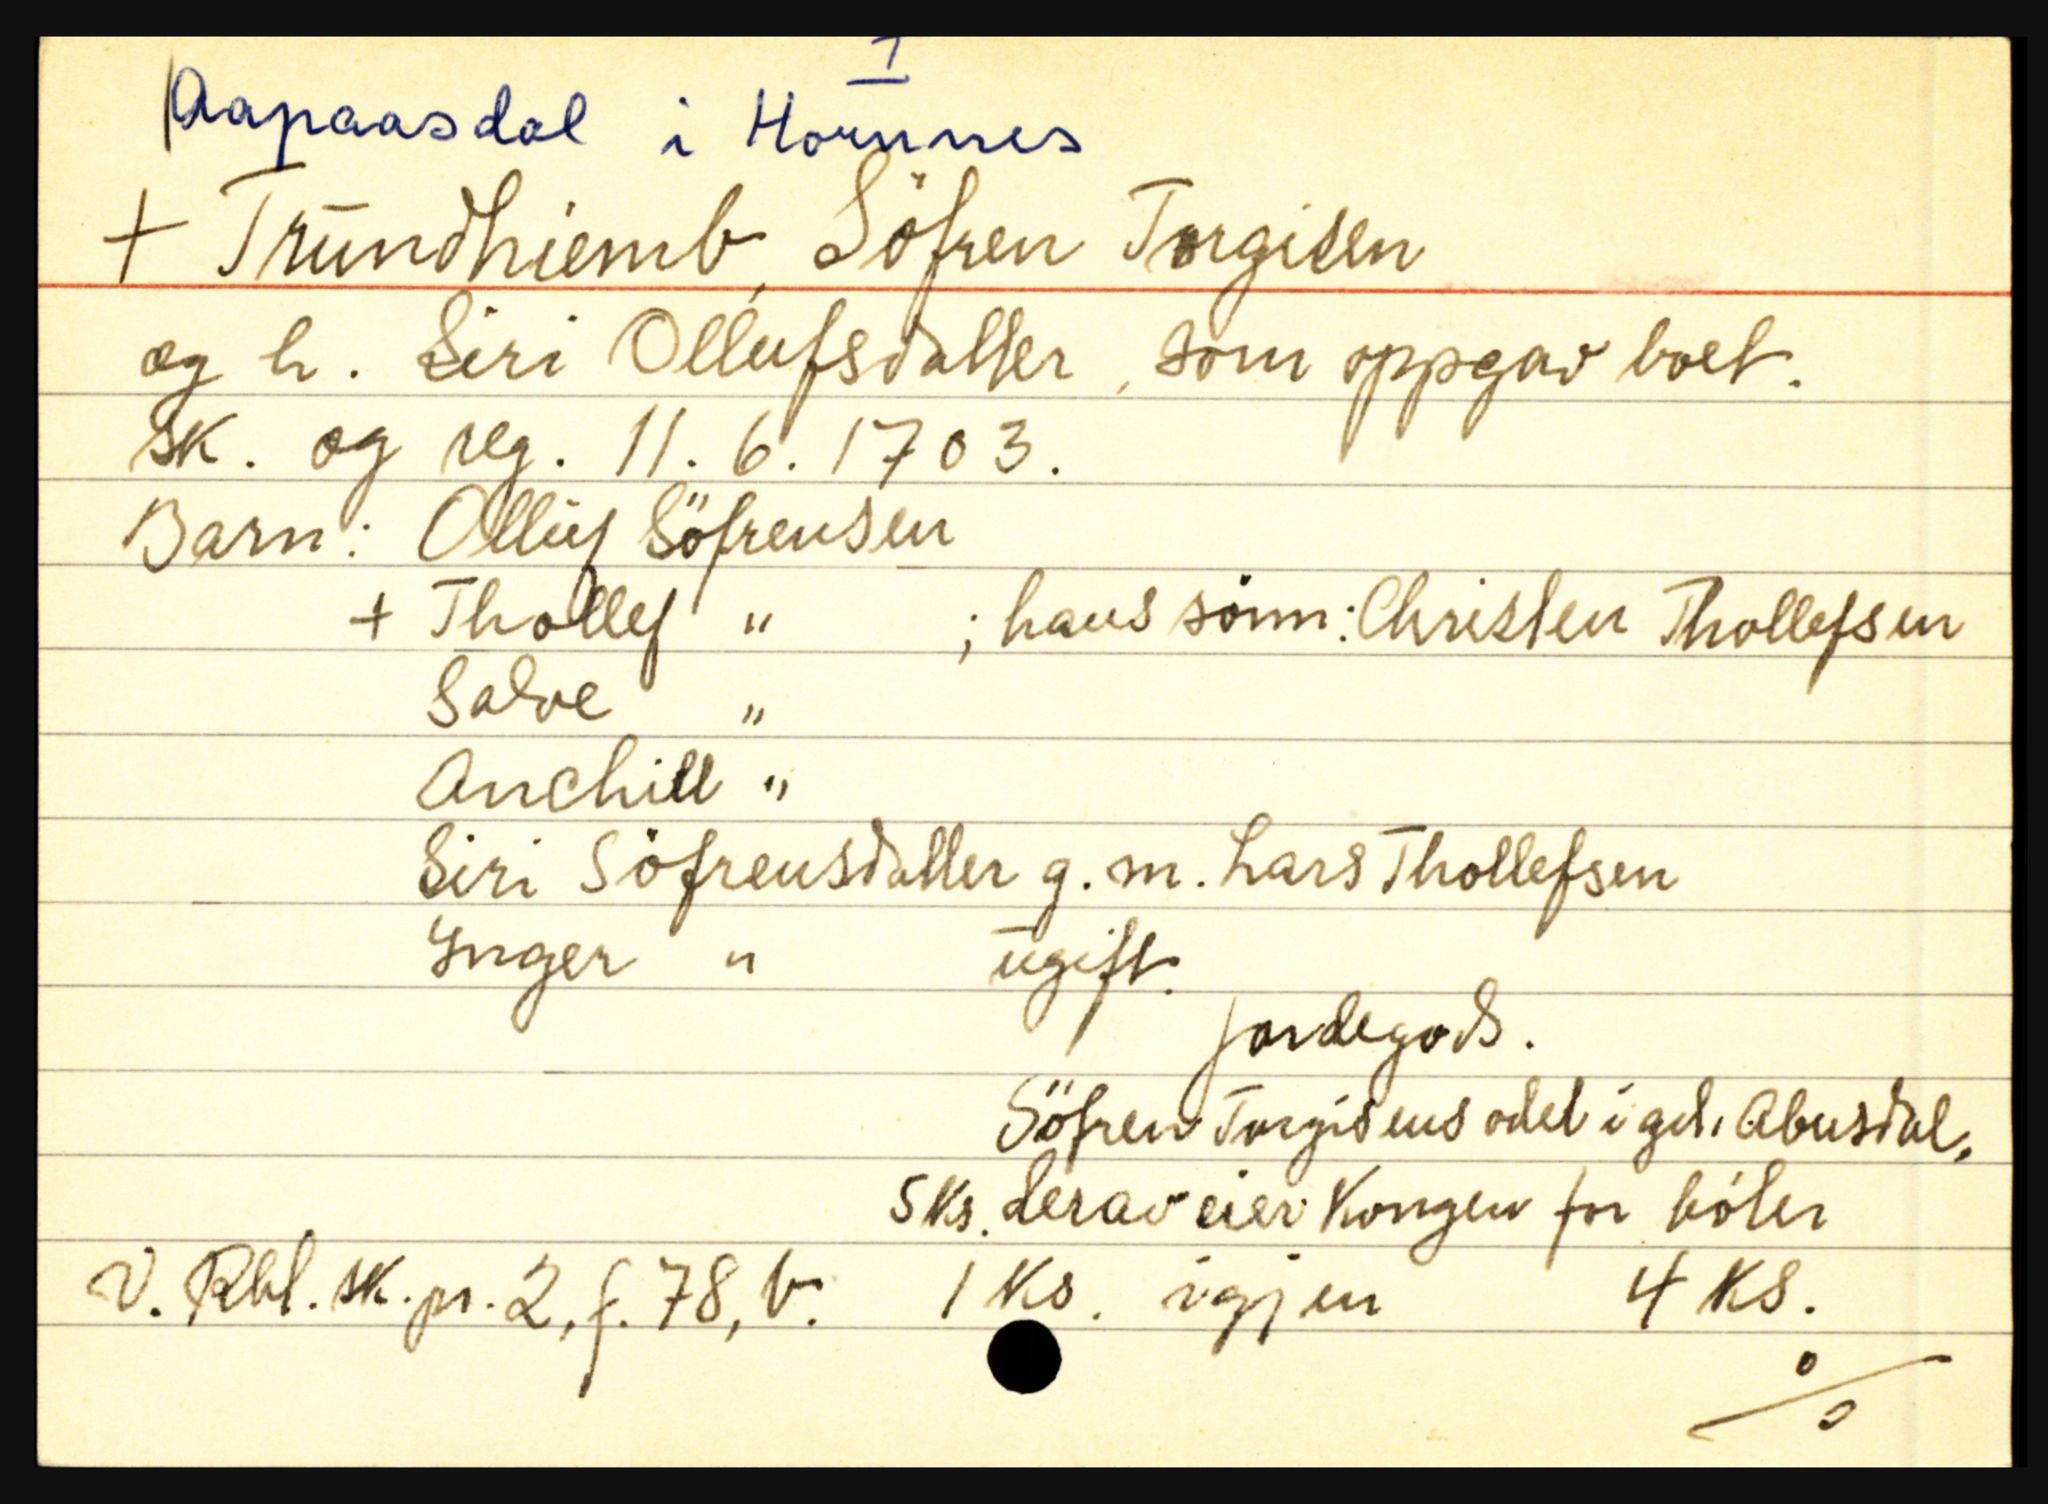 I
Aapaasdal i Hornnes
+ Trundhiemb, Söfren Torgisen
og h. Siri Ollufsdatter, som oppgav boet.
Sk. og reg. 11.6.1703.
Barn: Olluf Söfrensen
+ Thollef " ; hans sönn: Christen Thollefsen
Salve "
Anchill "
Siri Söfrensdatter g. m. Lars Thollefsen
Inger " ugift.
Jordegods.
Söfren Torgisens odel i gd. Abusdal.
5 Ks. derav eier Kongen for böter
V. Rbl. sk. pr. 2, f. 78, b. 1 Ks. igjen 4 Ks.
%